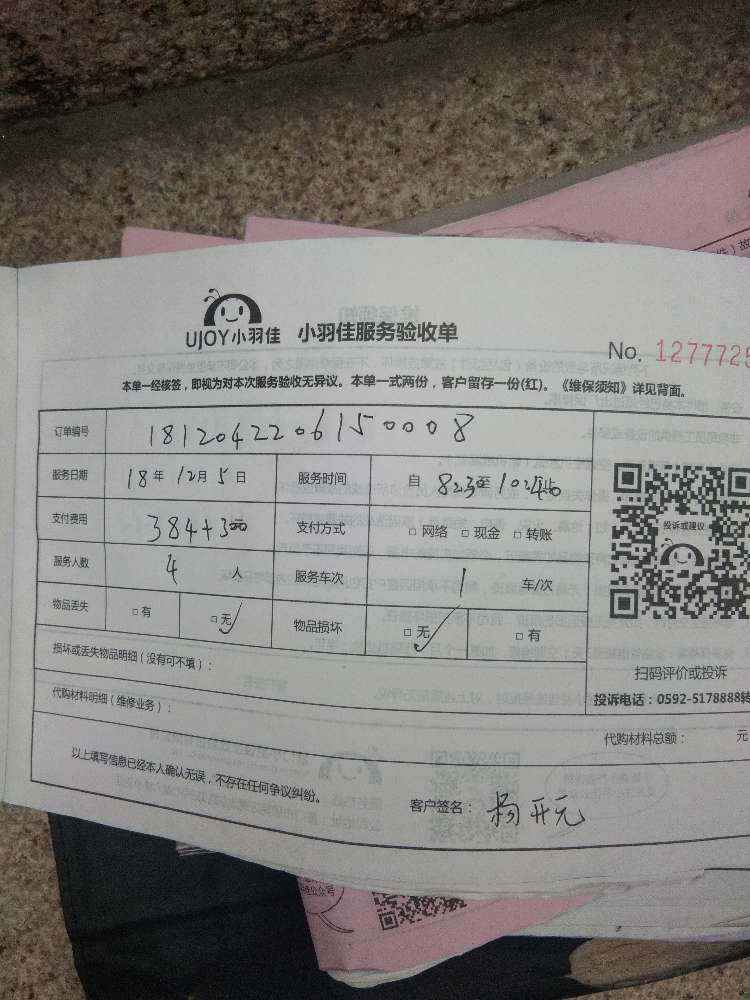 UJOY小羽佳 小羽佳服务验收单
No. 1277725
本单一经核签，即视为对本次服务验收无异议。本单一式两份，客户留存一份(红)。《维保须知》详见背面。
订单编号 1812042206150008
服务日期 18年12月5日 服务时间 自 823至
支付费用 384+300 支付方式 □网络 □现金 □转账
服务人数 4人 服务车次 1 车/次
物品丢失 □有 □无✓ 物品损坏 □无✓ □有
投诉或建议
扫码评价或投诉
投诉电话：0592-5178888转
损坏或丢失物品明细（没有可不填）：
代购材料明细（维修业务）：
代购材料总额： 元
以上填写信息已经本人确认无误，不存在任何争议纠纷。
客户签名：杨开元